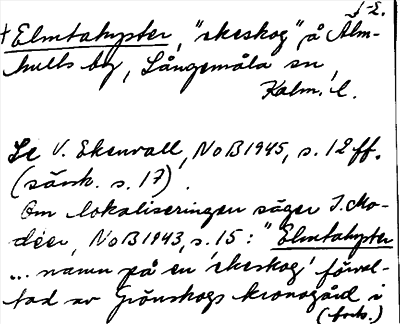 J-E.
† Elmtahypter, "ekeskog", å Älm-
hults by, Långemåla sn,
Kalm. l.
Se V. Ekenvall, NoB 1945, s. 12 ff.
(särsk. s. 17).
Om lokaliseringen säger I. Mo-
déer, NoB 1943, s. 15: "Elmtahypter
... namn på en 'ekeskog' förvel-
tad av Grönskogs kronogård i
(forts.)